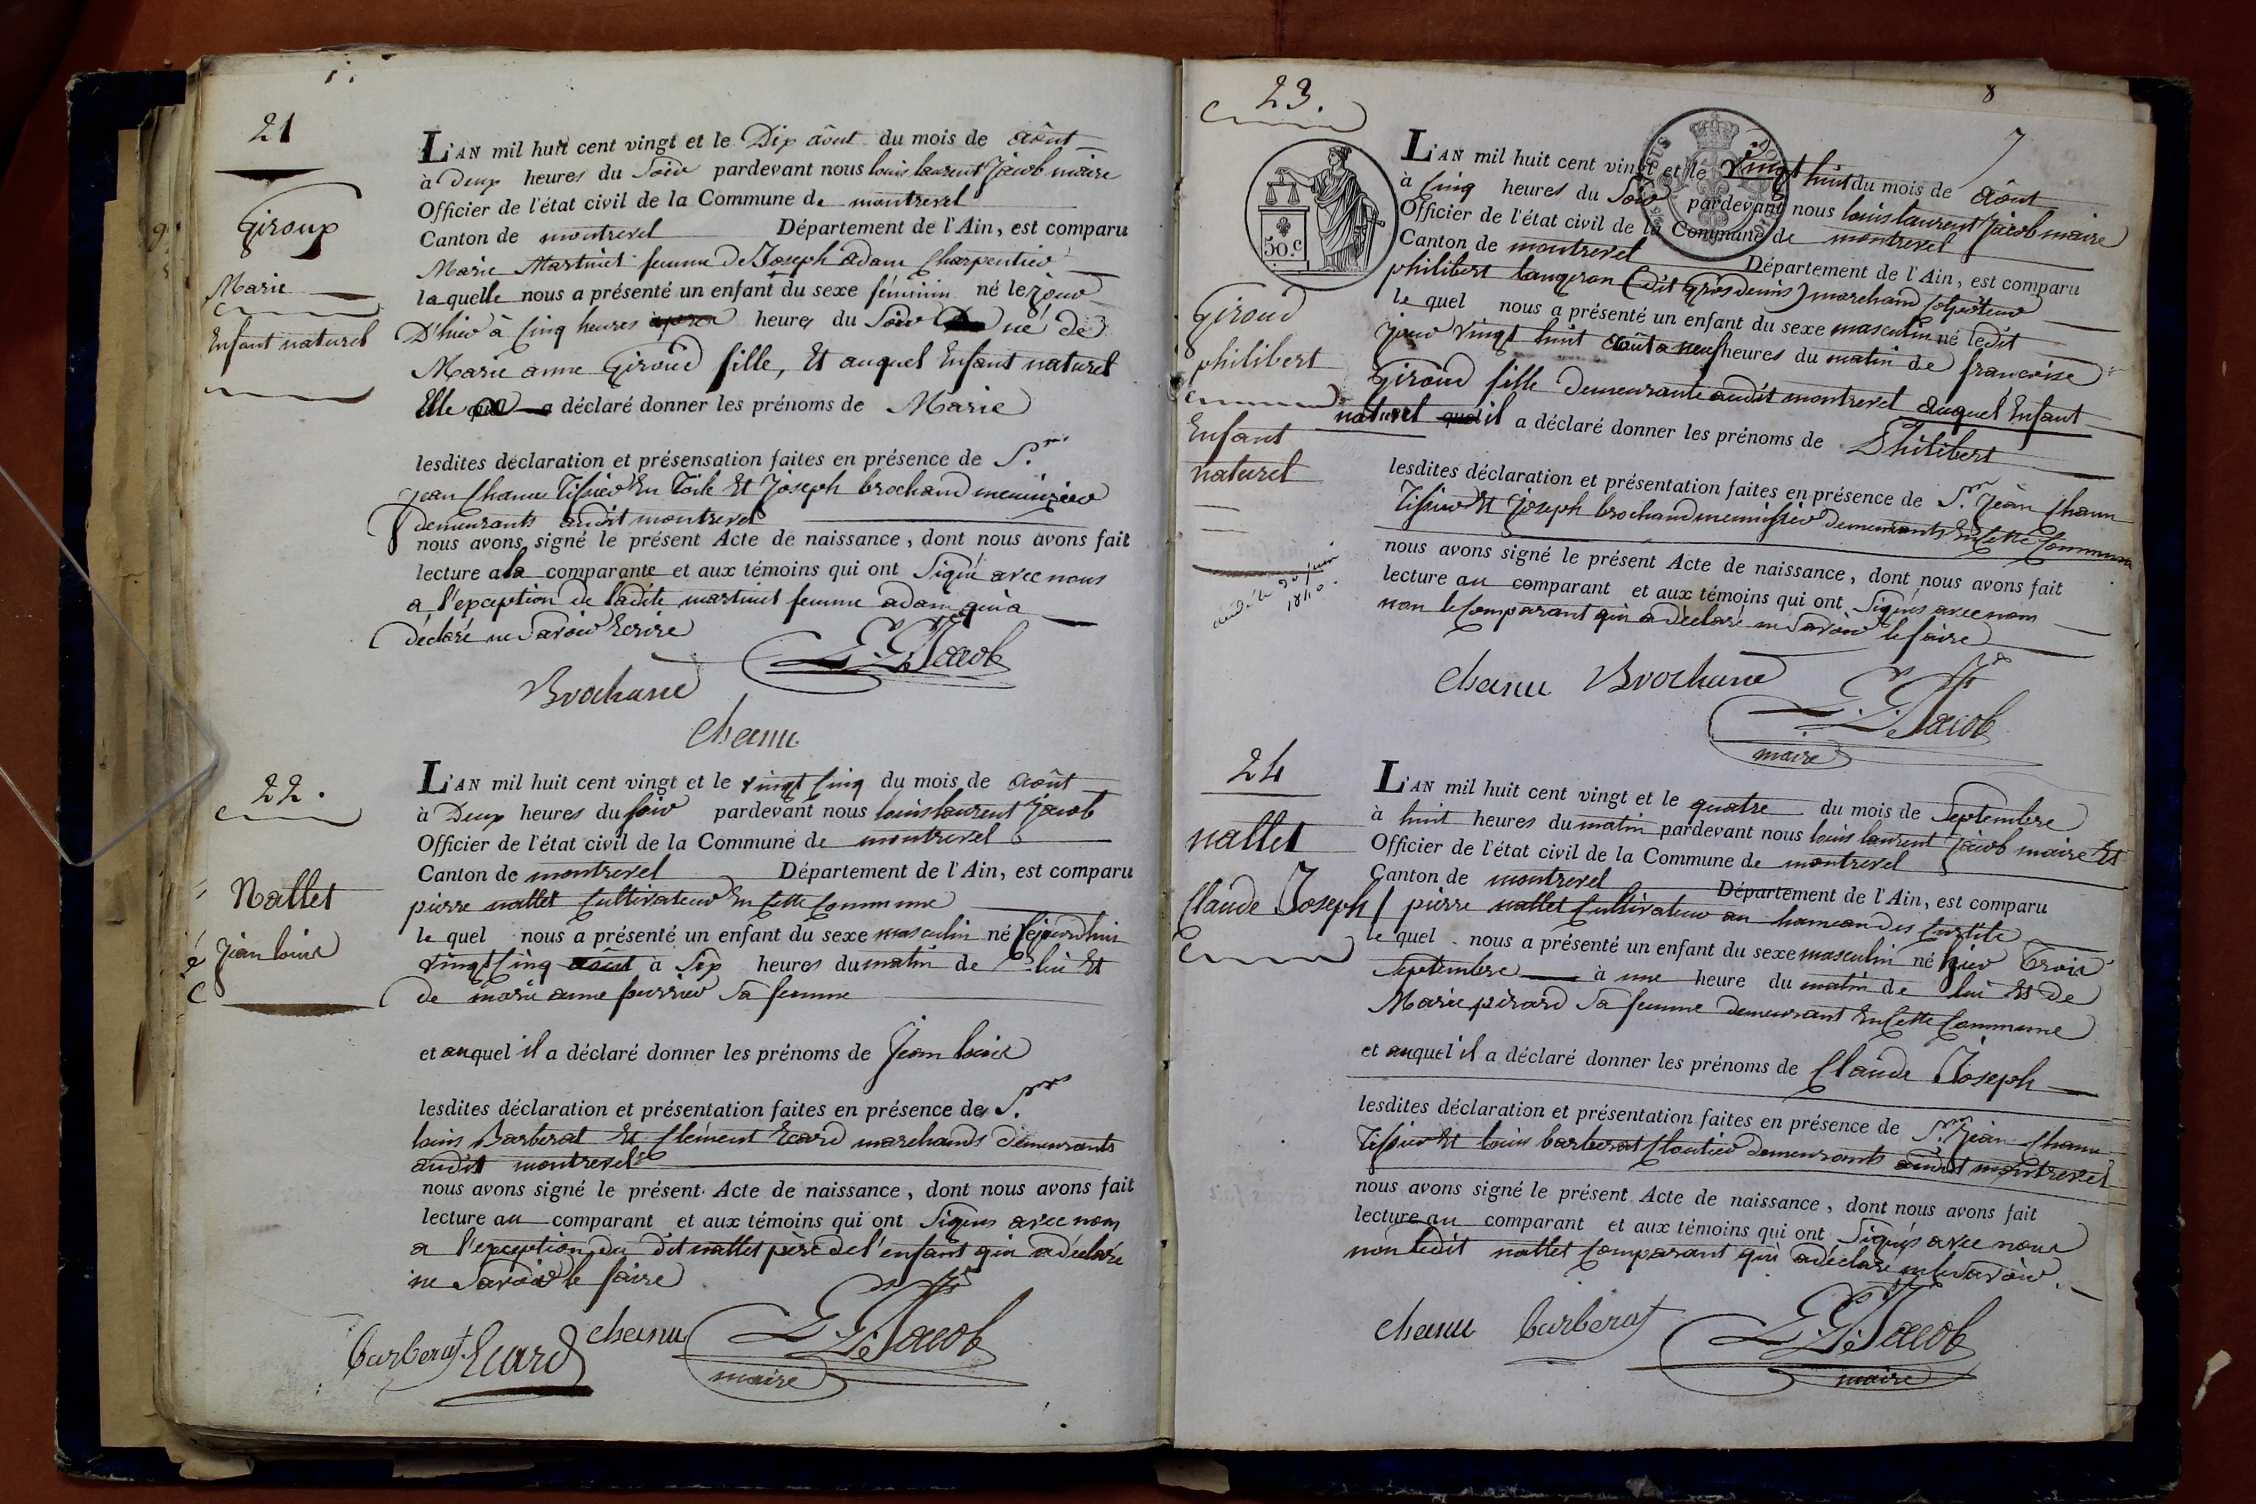 21
Giroux
Marie
Enfant naturel
L'AN mil huit cent vingt et le Dix août du mois de août
à Deux heures du Soir pardevant nous louis laurent Jacob maire
Officier de l'état civil de la Commune de montrevel
Canton de montrevel Département de l'Ain, est comparu
Marie Martinet femme De Joseph adam Charpentier
laquelle nous a présenté un enfant du sexe féminin né le jour
D'hier à Cinq heures heures du Soir né de
Marie anne Giroud fille, Et auquel Enfant naturel
Elle a déclaré donner les prénoms de Marie
lesdites déclaration et présensation faites en présence de S.rs
jean Chanu Tissier En Toile Et Joseph brochand menuisier
demeurants audit montrevel
nous avons signé le présent Acte de naissance, dont nous avons fait
lecture a la comparante et aux témoins qui ont Signé avec nous
a l'exception de ladite martinet femme adam qui a
déclaré ne Savoir Ecrire
L. L. Jacob
Brochand
Chanu
22.
Nallet
jean louis
L'AN mil huit cent vingt et le vingt Cinq du mois de août
à Deux heures du soir pardevant nous louis laurent Jacob
Officier de l'état civil de la Commune de montrevel
Canton de montrevel Département de l'Ain, est comparu
pierre nallet Cultivateur En Cette Commune
le quel nous a présenté un enfant du sexe masculin né cejourdhui
vingt Cinq août à Six heures du matin de lui Et
de marie anne sa femme
et auquel il a déclaré donner les prénoms de Jean louis
lesdites déclaration et présentation faites en présence de S.rs
louis Barberat Et Clément Ecard marchands demeurants
audit montrevel
nous avons signé le présent Acte de naissance, dont nous avons fait
lecture au comparant et aux témoins qui ont Signés avec nous
a l'exception du dit nallet père de l'enfant qui a déclaré
ne Savoir le faire
barberat Ecard chanu L. L. Jacob
maire
8
7
23.
50.c
Giroud
philibert
Enfant
naturel
décédé le 20 juin
1840.
L'AN mil huit cent vingt et le vingt huit du mois de août
à Cinq heures du Soir pardevant nous louis laurent Jacob maire
Officier de l'état civil de la Commune de montrevel
Canton de montrevel Département de l'Ain, est comparu
philibert langeron (dit Gros denis) marchand Colporteur
le quel nous a présenté un enfant du sexe masculin né ledit
jour vingt huit août a neuf heures du matin de francoise
Giroud fille demeurante audit montrevel auquel Enfant
naturel il a déclaré donner les prénoms de Philibert
lesdites déclaration et présentation faites en présence de S.rs Jean Chanu
Tissier Et Joseph brochand menuisier demeurants En Cette Commune
nous avons signé le présent Acte de naissance, dont nous avons fait
lecture au comparant et aux témoins qui ont Signés avec nous
non le Comparant qui a déclaré ne Savoir le faire
chanu Brochand L. L. Jacob
maire
24
nallet
Claude Joseph
L'AN mil huit cent vingt et le quatre du mois de Septembre
à huit heures du matin pardevant nous louis laurent Jacob maire Et
Officier de l'état civil de la Commune de montrevel
Canton de montrevel Département de l'Ain, est comparu
pierre nallet Cultivateur au hameau des Curtils
le quel nous a présenté un enfant du sexe masculin né hier Trois
Septembre à une heure du matin de lui Et de
Marie pirard Sa femme demeurant En Cette Commune
et auquel il a déclaré donner les prénoms de Claude Joseph
lesdites déclaration et présentation faites en présence de S.rs Jean Chanu
Tissier Et louis barberat Cloutier demeurants audit montrevel
nous avons signé le présent Acte de naissance, dont nous avons fait
lecture au comparant et aux témoins qui ont Signés avec nous
non ledit nallet Comparant qui a déclaré ne le Savoir.
chanu barberat L. L. Jacob
maire